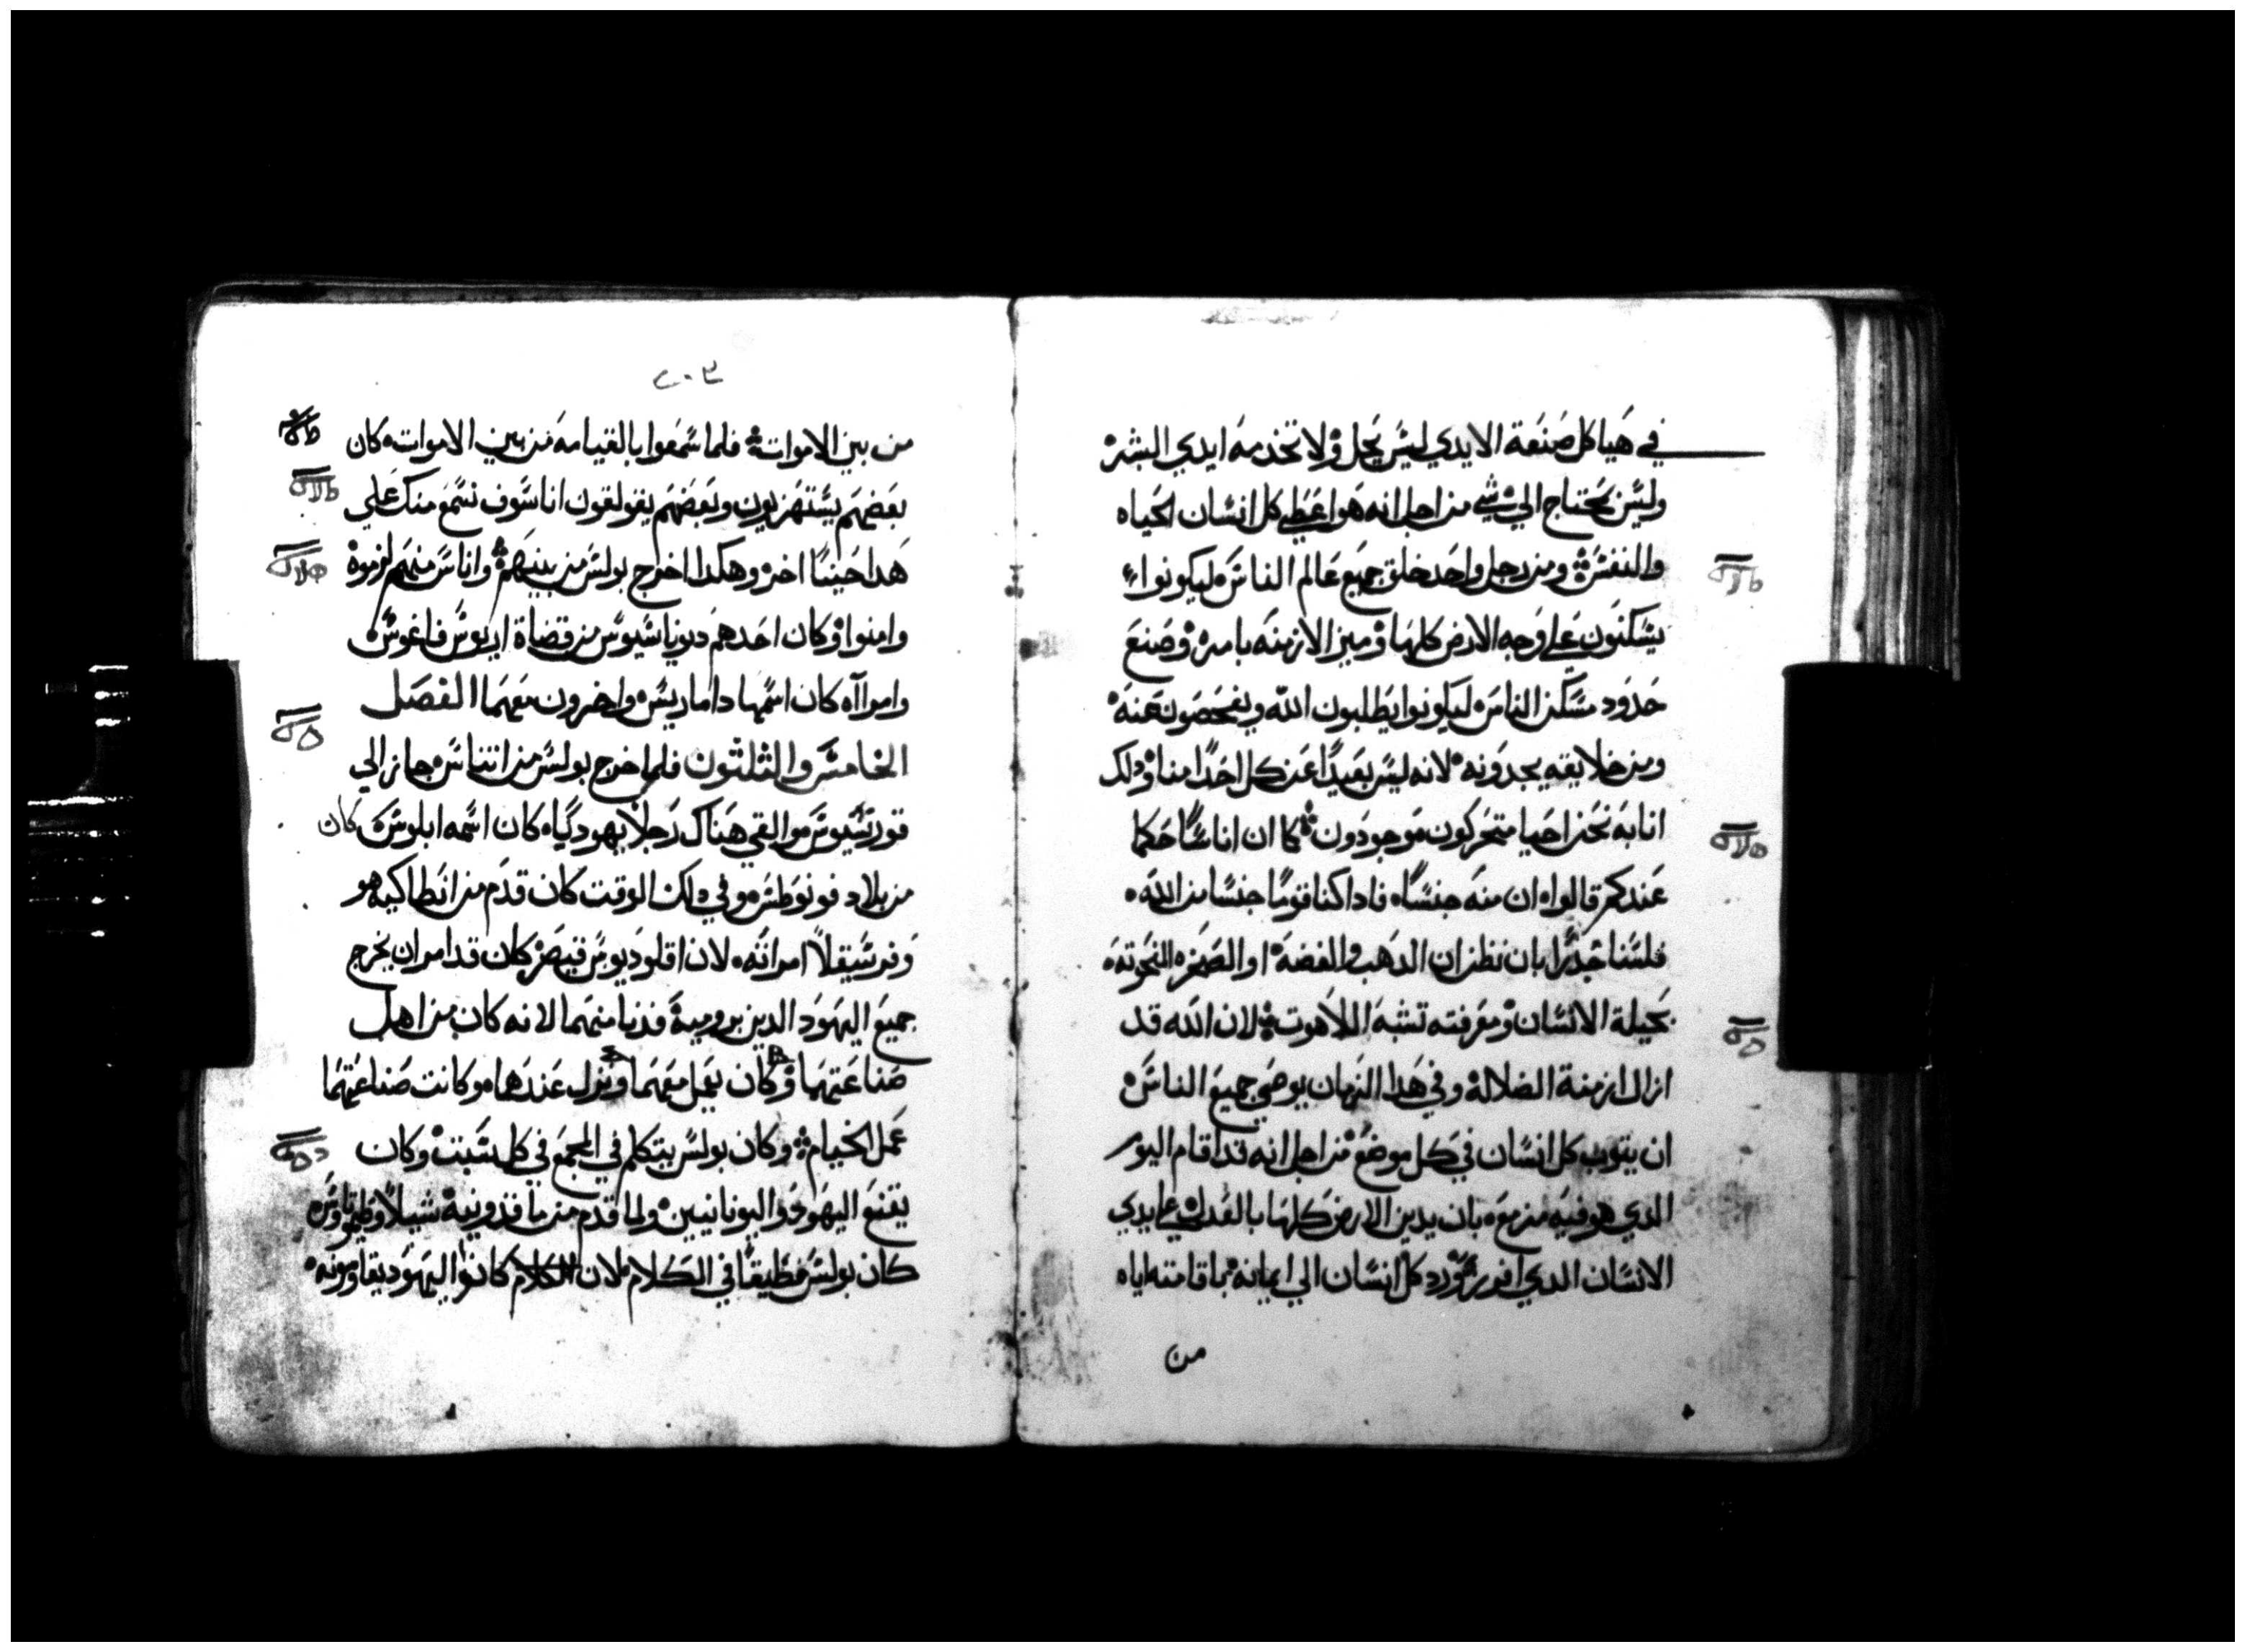 في هياكل صنعة الايدي ليس يحل ولا تخدمه ايدي البشر
وليس يحتاج الي شي من اجل انه هو اعطي كل انسان الحياه
والنفس ومن رجل واحد خلق جميع عالم الناس ليكونوا
يسكنون علي وجه الارض كلها وميز الازمنه بامره وصنع
حدود مسكن الناس ليكونوا يطلبون الله ويفحصون عنه
ومن خلايقه يجدونه لانه ليس بعيدًا عن كل احدًا منا ودلك
انا به نحن احيا متحركون موجودون كما ان اناسًا حكما
عندكم قالوا ان منه جنسًا فادا كنا قومًا جنسًا من الله
فلسنا جديرًا بان نظن ان الدهب والفضه او الصخره المنحوته
بحيلة الانسان ومعرفته تشبه اللاهوت لان الله قد
ازال ازمنة الضلاله وفي هدا الزمان يوصي جميع الناس
ان يتوب كل انسان في كل موضع من اجل انه قد اقام اليوم
الدي هو فيه مزمع بان يدين الارض كلها بالعدل علي يدي
الانسان الدي افرز ورد كل انسان الي ايمانه بما قامته اياه
من
٢٠٣
من بين الاموات فلما سمعوا بالقيامه من بين الاموات كان
بعضهم يستهزيون وبعضهم يقولون انا سوف نسمع منك علي
هدا حينًا اخر وهكدا اخرج بولس من بينهم واناس منهم لزموه
وامنوا وكان احدهم ديوناسيوس من قضاة اريوس فاغوس
وامراه كان اسمها داماريس واخرون معهما الفصل
الخامس والثلثون فلما خرج بولس من اتناس جا الي
قورنثيوس والقي هناك رجلًا يهوديًا كان اسمه ابلوس كان
من بلاد فونوطس وفي دلك الوقت كان قدم من انطاكيه هو
وفرسقلا امراته لان اقلوديوس قيصر كان قد امر ان يخرج
جميع اليهود الدين برومية فدنا منهما لانه كان من اهل
صناعتهما وكان يعمل معهما ونزل عندهما وكانت صناعتهما
عمل الخيام وكان بولس يتكلم في المجمع في كل سبت وكان
يقنع اليهود واليونانيين ولما قدم من ماقدونية شيلا وطيموتاوس
كان بولس مظيقًا في الكلام لان الكلام كانوا اليهود يقاومونه